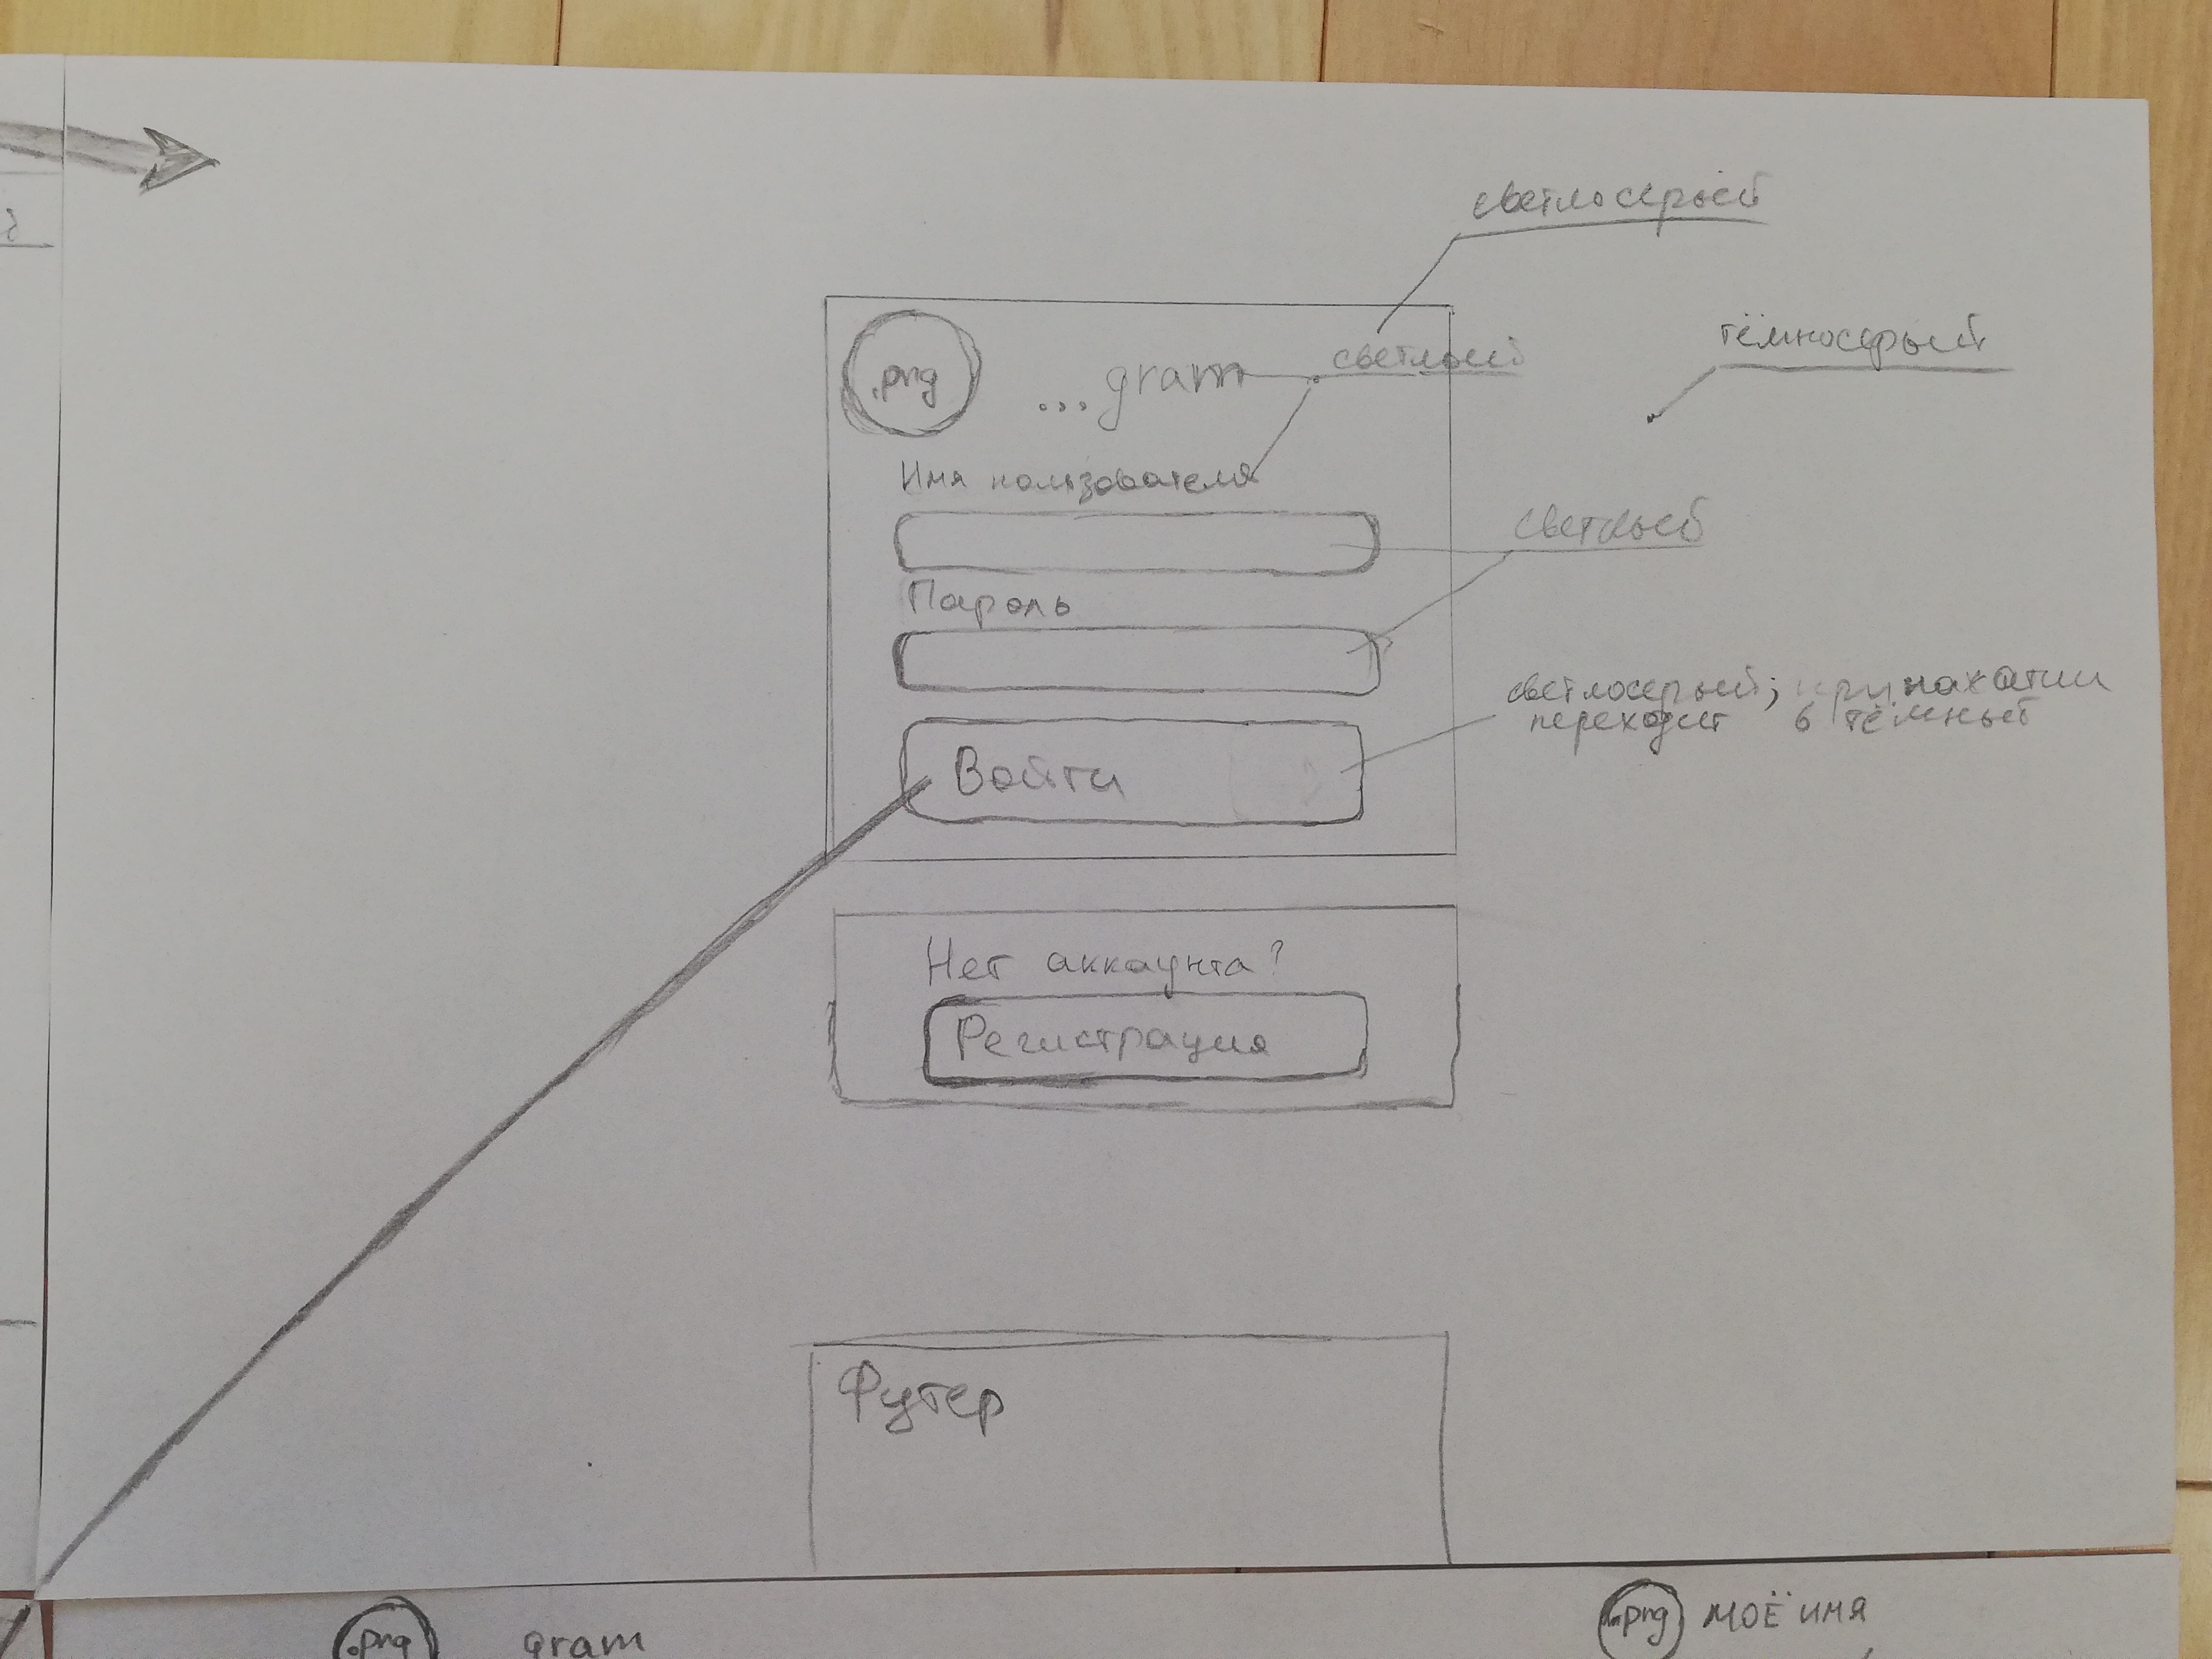 светлосерый
тёмносерый
.png
...gram
светлый
Имя ползователя
светлый
Пароль
светлосерый; при нажатии
переходит в тёмный
Войти
Нет аккаунта?
Регистрация
Футер
.png
gram
.png
МОЁ ИМЯ